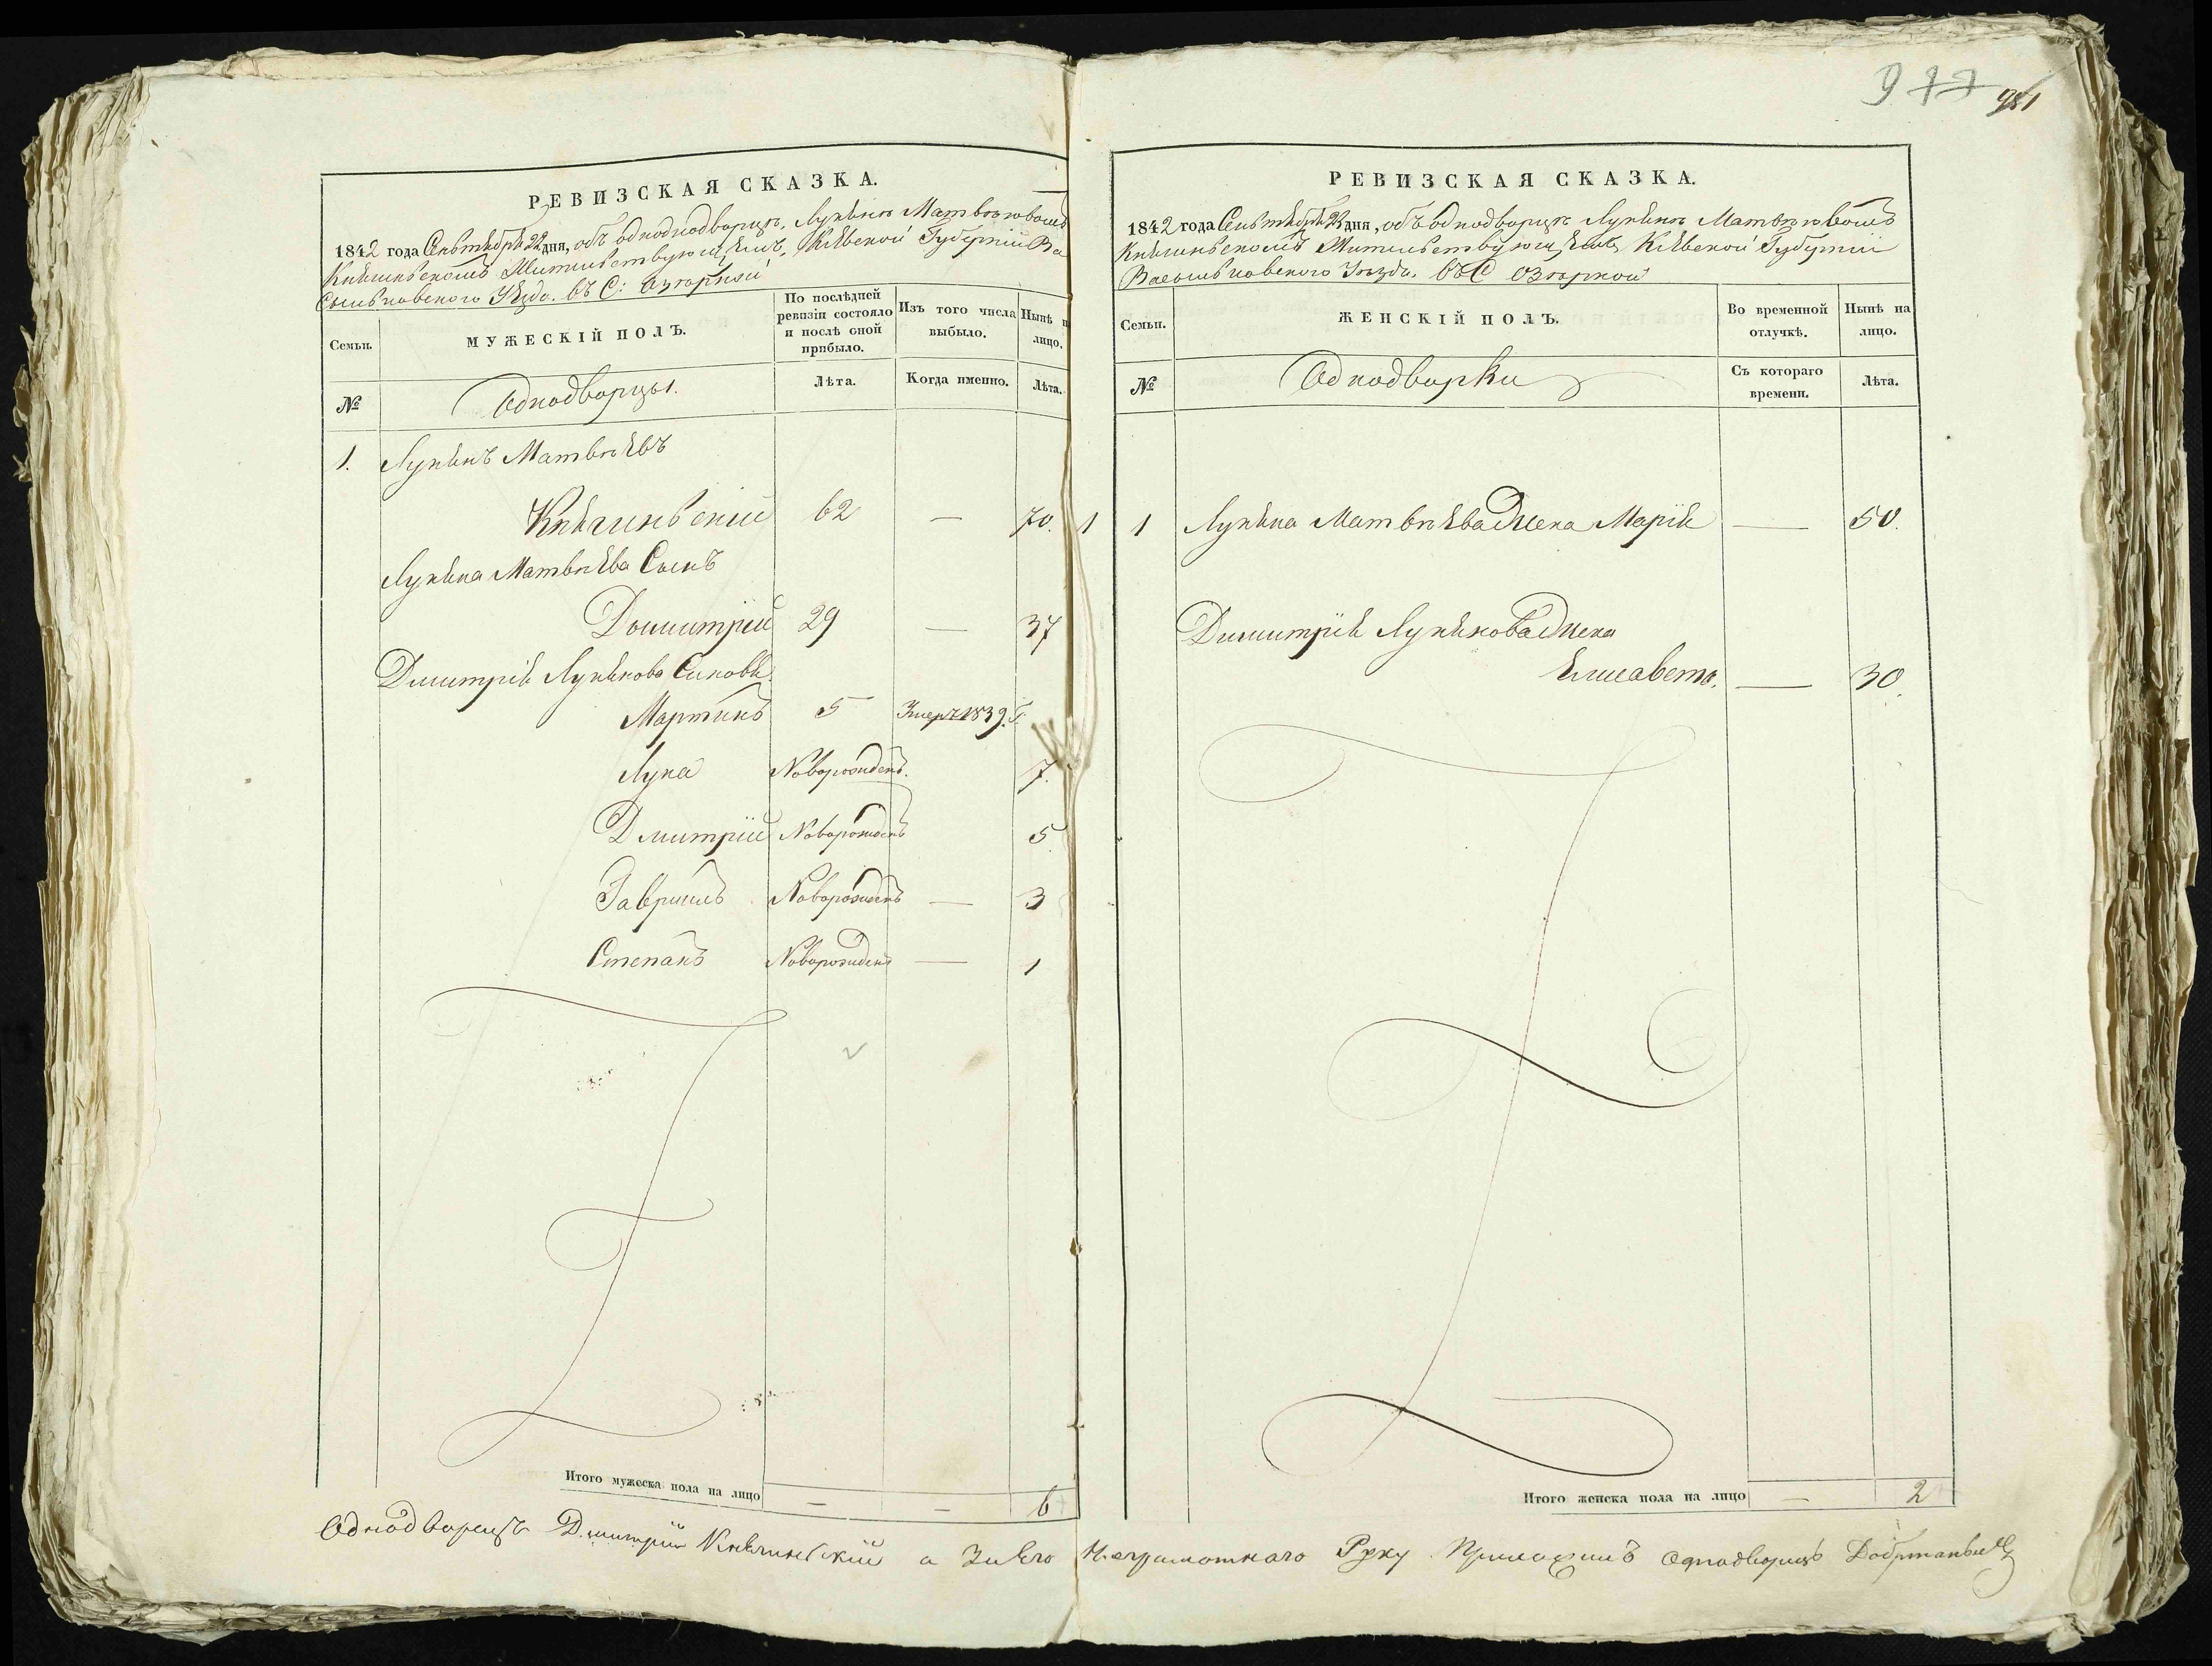 977 981
РЕВИЗСКАЯ СКАЗКА.
1842 года Сентября 22 дня, объ однодворцѣ, Лукянѣ Матвѣювомъ
Княгинскомъ Жительствующемъ, Кіевской Губерніи Ва
сильковского Уѣзда. въ С: Озѣрной
Семьи.
МУЖЕСКІЙ ПОЛЪ.
По послѣдней ревизіи состояло и послѣ оной прибыло.
Изъ того числа выбыло.
Нынѣ н лицо.
№
Однодворцы.
Лѣта.
Когда именно.
Лѣта.
1. Лукянъ Матвѣевъ
Княгинскій 62 — 70.
Лукяна Матвѣева Сынъ
Дымитрій 29 — 37
Дмитрія Лукянова Синовя
Мартинъ 5 Умеръ 1839. Г.
Лука Новорожденъ. 7.
Дмитрій Новорожденъ 5
Гавриилъ Новорожденъ — 3
Степанъ Новорожденъ — 1
Итого мужеска пола на лицо — — 6
РЕВИЗСКАЯ СКАЗКА.
1842 года Сентября 22 дня, объ однодворцѣ Лукянѣ Матвѣювомъ
Княгинскомъ Жительствующемъ Кіевской Губерніи
Васильковского Уѣзда. въ С Озѣрной
Семьи.
ЖЕНСКІЙ ПОЛЪ.
Во временной отлучкѣ.
Нынѣ на лицо.
№
Однодворки
Съ котораго времени.
Лѣта.
1 1 Лукяна Матвѣева Жена Марія — 50.
Димитрія Лукянова Жена
Елисавета. — 30.
Итого женска пола на лицо — 2
Однодворецъ Дмитрій Княгинскій а За Его Неграмотнаго Руку Приложилъ однодворецъ